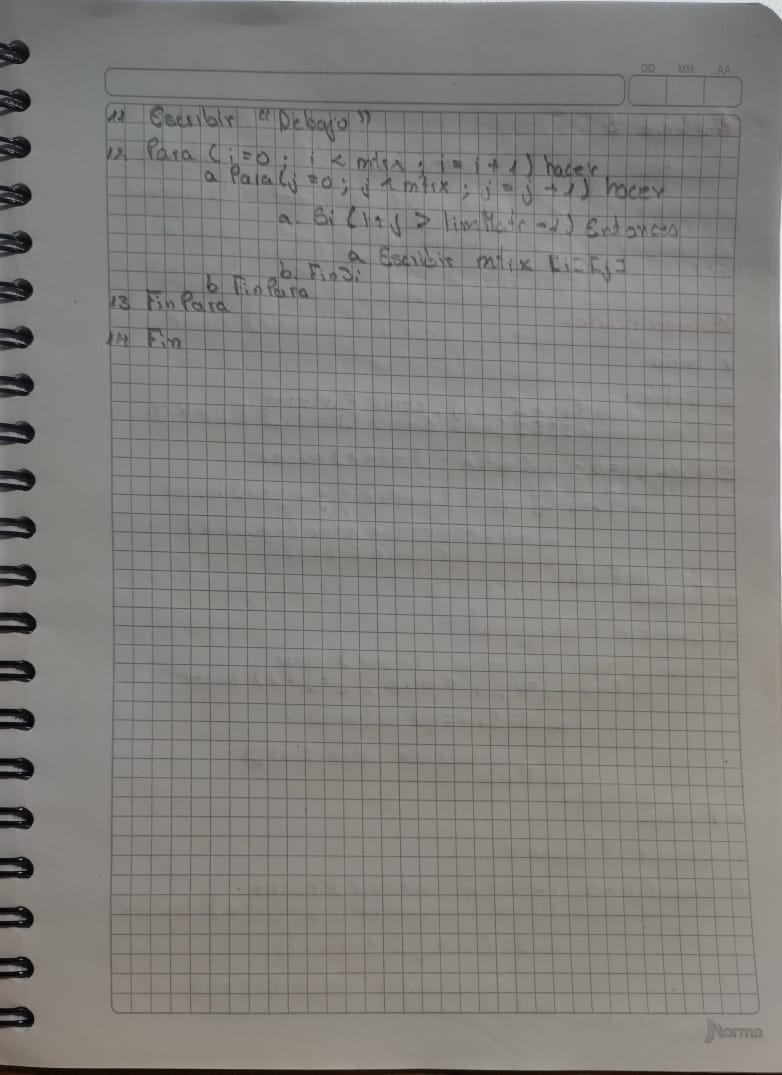 DD MM AA
11 Escribir "Debajo"
12 Para (i=0; i < mtrx; i = i + 1) hacer
a Para (j=0; j < mtrx; j = j + 1) hacer
a. Si (i+j > limMatr -1) Entonces
a Escribir mtrx [i][j]
b. FinSi
b FinPara
13 FinPara
14 Fin
Norma